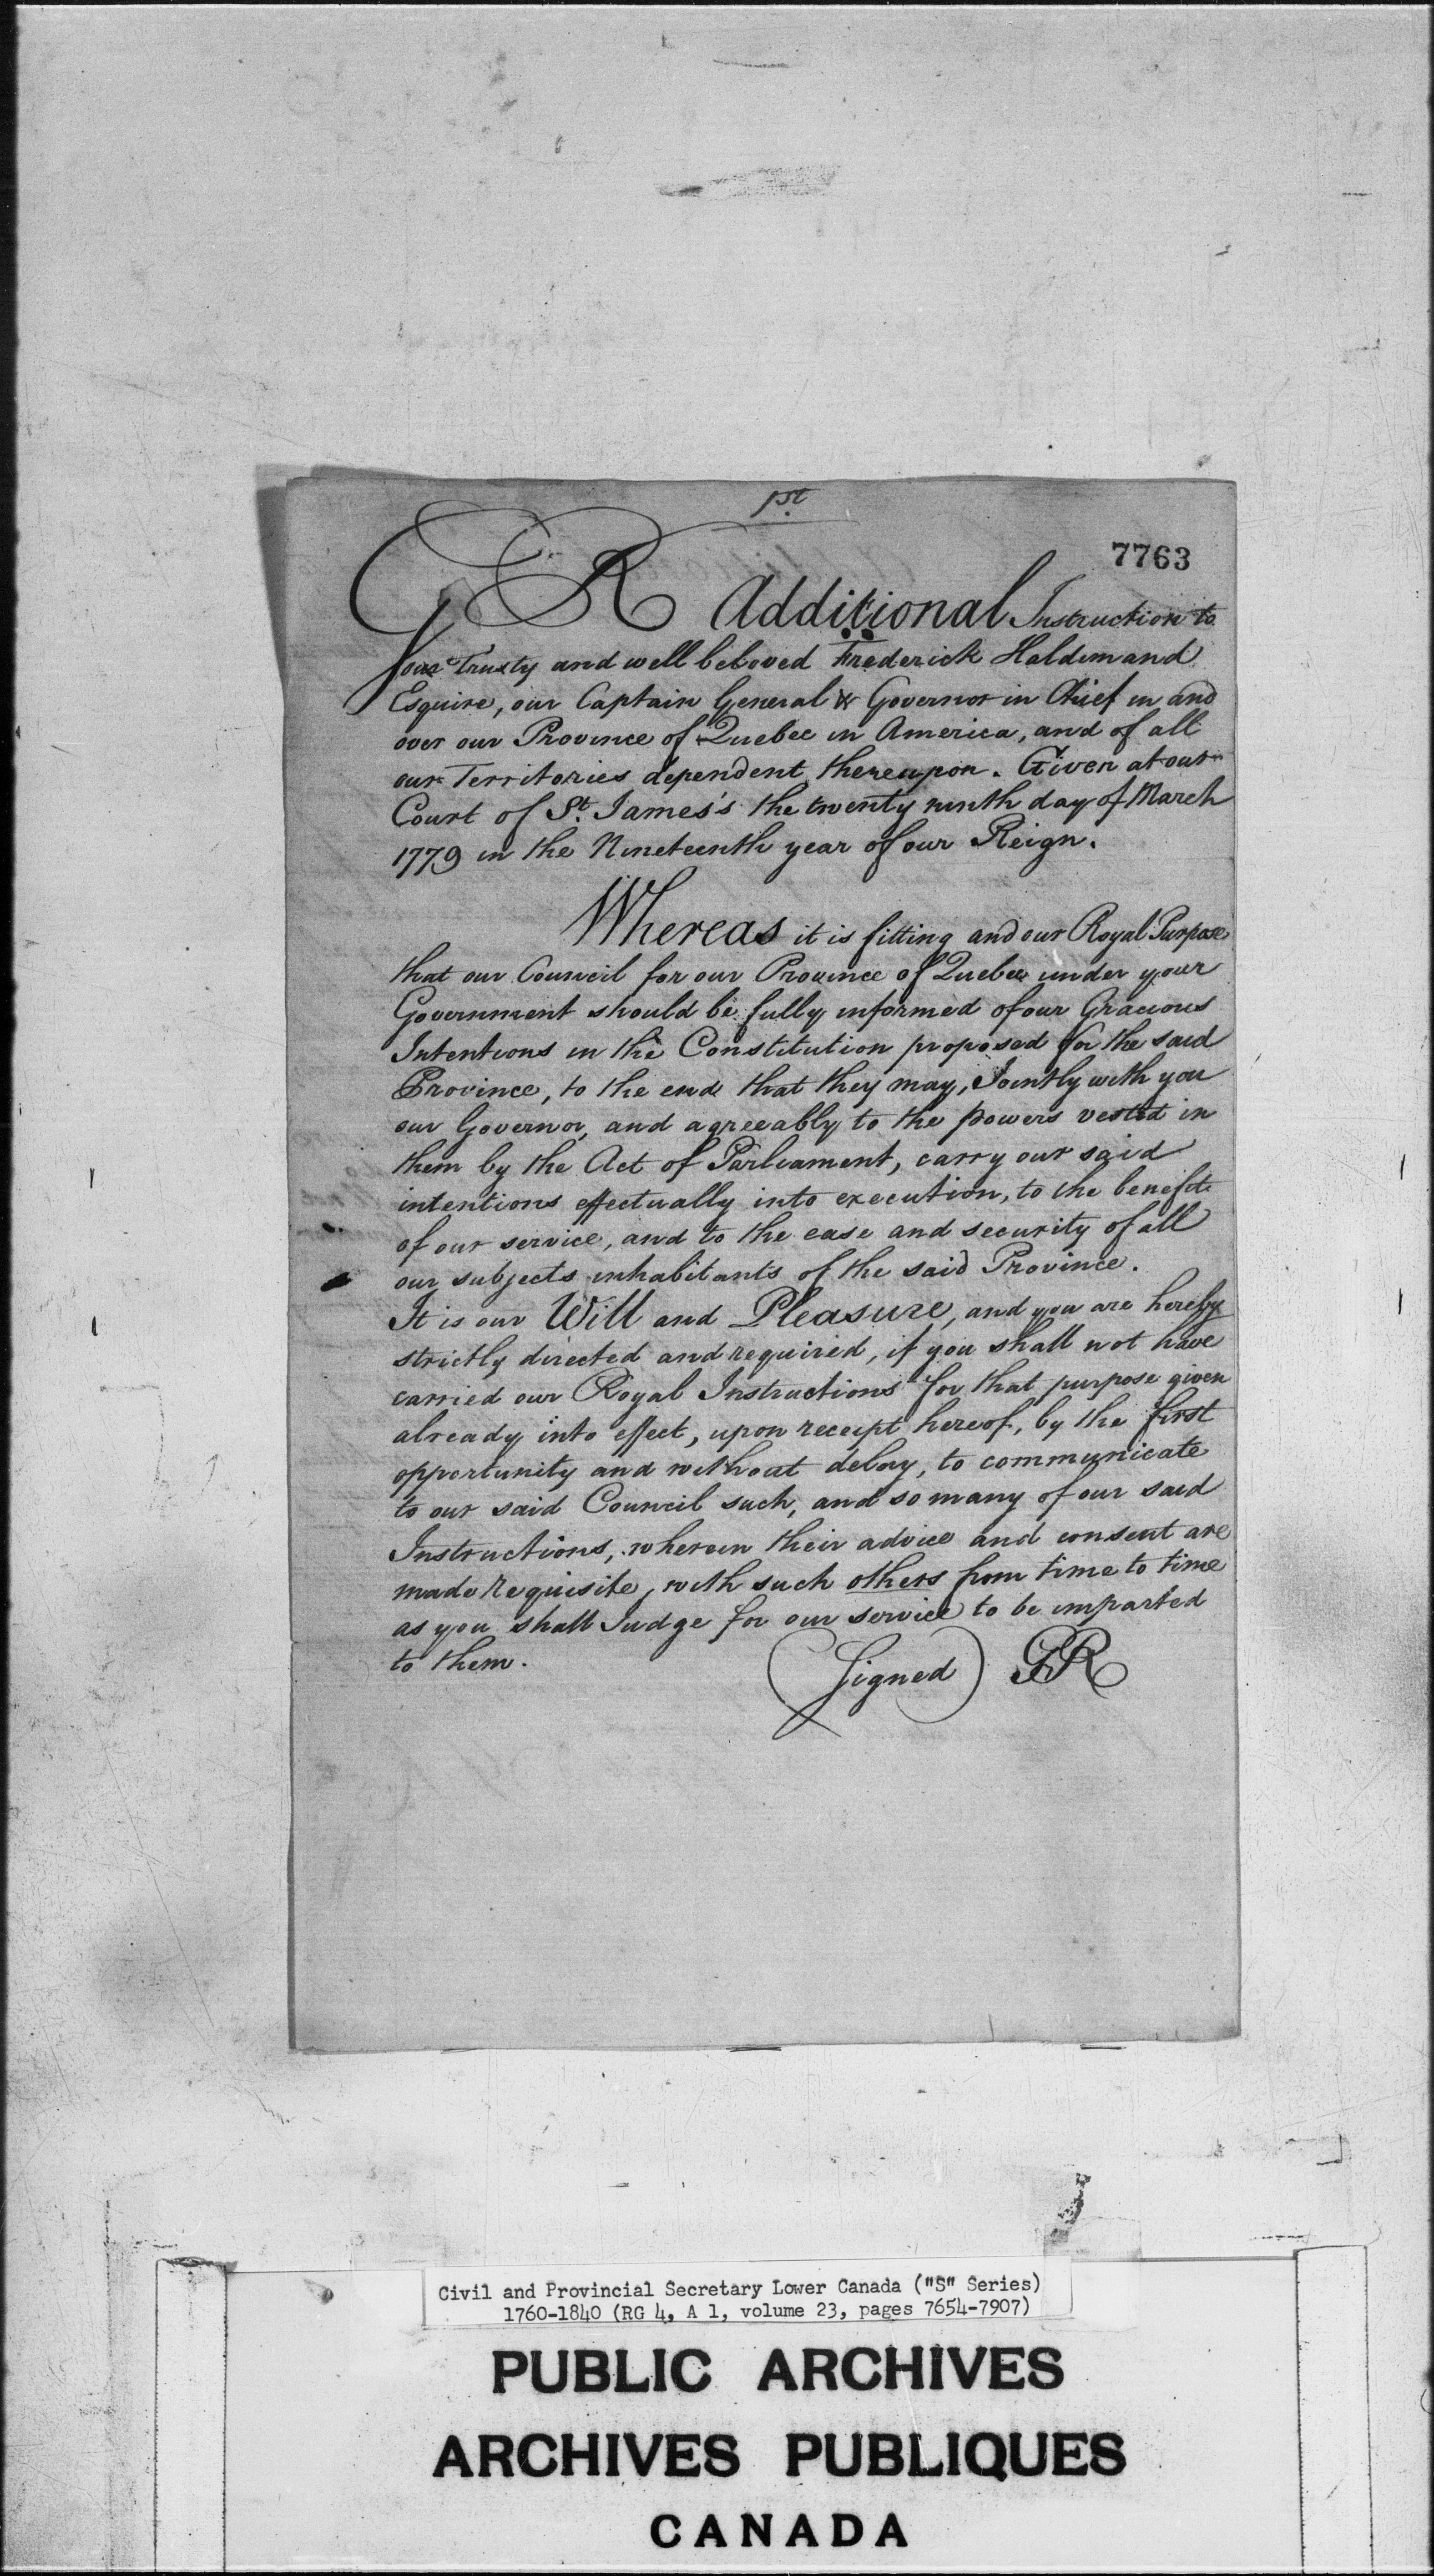 1st
7763
GR Additional Instruction to
our Trusty and well beloved Frederick Haldimand
Esquire, our Captain General & Governor in Chief in and
over our Province of Quebec in America, and of all
our Territories dependent thereupon. Given at our
Court of St. James's the twenty ninth day of March
1779 in the Nineteenth year of our Reign.
Whereas it is fitting and our Royal Purpose
that our Council for our Province of Quebec under your
Government should be fully informed of our Gracious
Intentions in the Constitution proposed for the said
Province, to the end that they may, Jointly with you
our Governor, and agreeably to the powers vested in
them by the Act of Parliament, carry our said
intentions effectually into execution, to the benefit
of our service, and to the ease and security of all
our subjects inhabitants of the said Province.
It is our Will and Pleasure, and you are hereby
strictly directed and required, if you shall not have
carried our Royal Instructions for that purpose given
already into effect, upon receipt hereof, by the first
opportunity and without delay, to communicate
to our said Council such, and so many of our said
Instructions, wherein their advice and consent are
made requisite, with such others from time to time
as you shall Judge for our service to be imparted
to them.
(Signed) GR
Civil and Provincial Secretary Lower Canada ("S" Series)
1760-1840 (RG 4, A 1, volume 23, pages 7654-7907)
PUBLIC ARCHIVES
ARCHIVES PUBLIQUES
CANADA